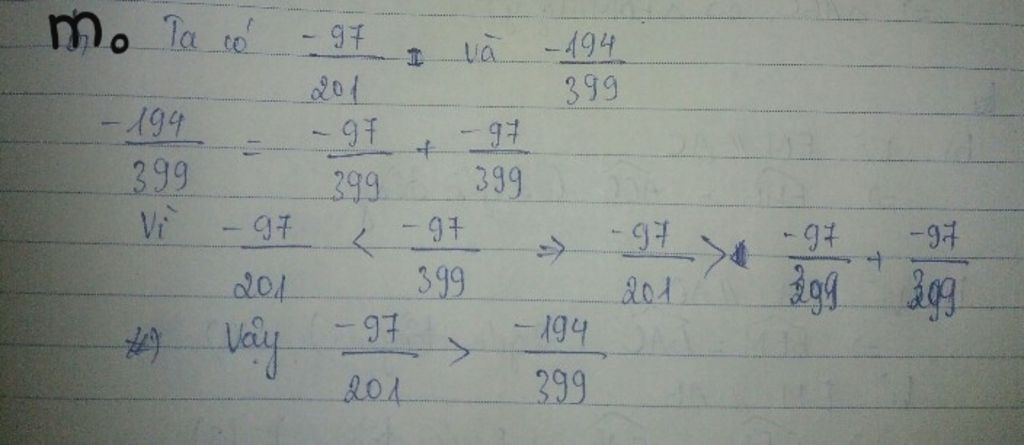 m. Ta có -97/201 và -194/399
-194/399 = -97/399 + -97/399
Vì -97/201 < -97/399 => -97/201 > -97/399 + -97/399
Vậy -97/201 > -194/399